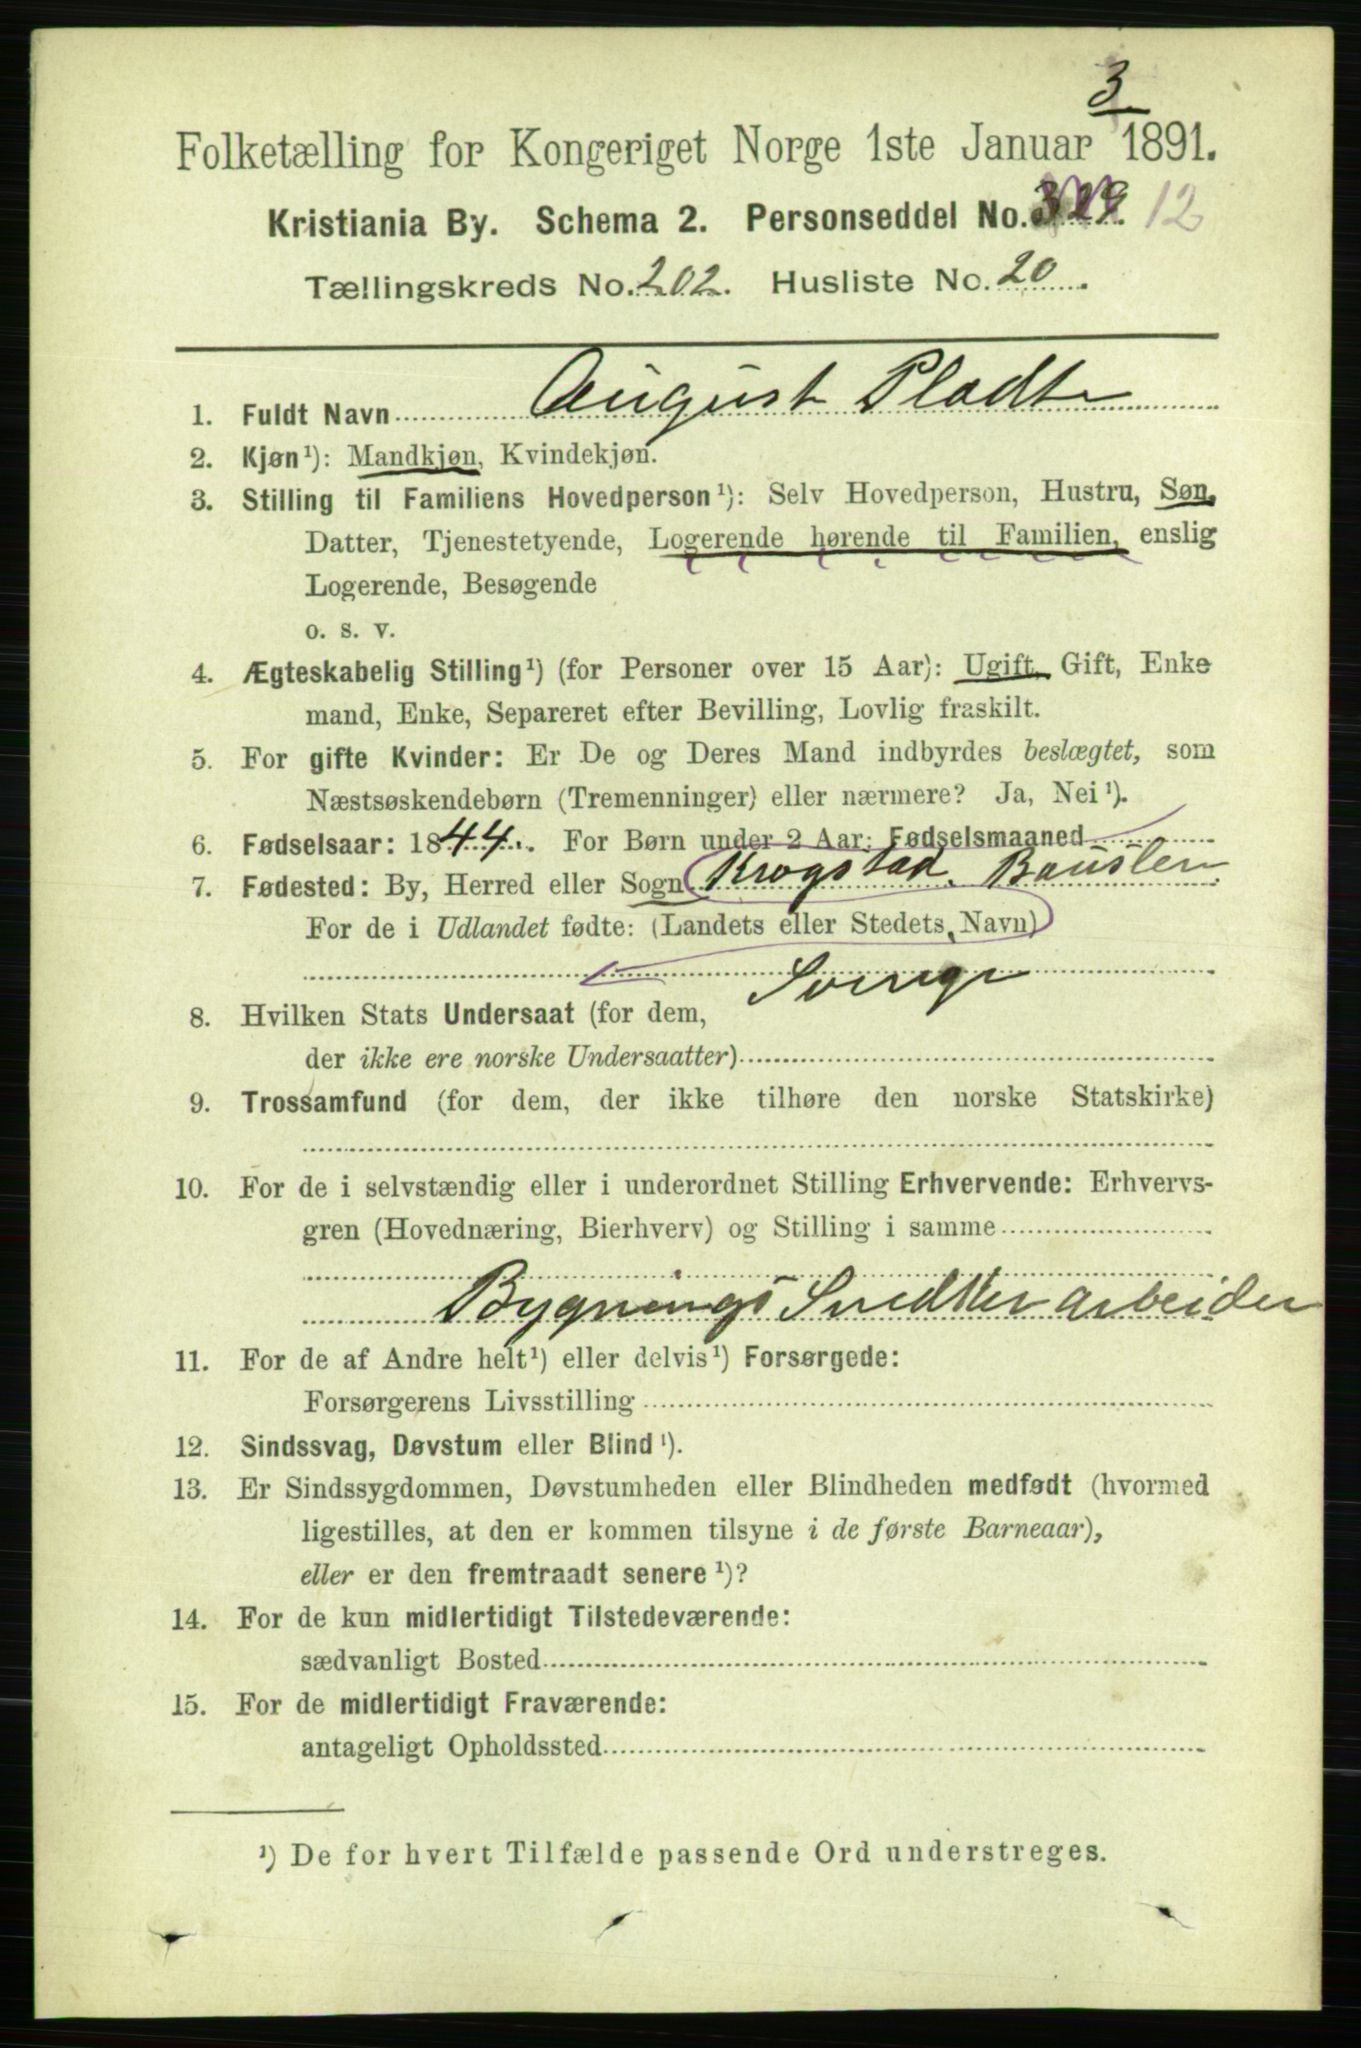 3
Folketælling for Kongeriget Norge 1ste Januar 1891.
Kristiania By. Schema 2. Personseddel No. 12
Tællingskreds No. 202. Husliste No. 20
1. Fuldt Navn August Pladt
2. Kjøn¹): Mandkjøn, Kvindekjøn.
3. Stilling til Familiens Hovedperson¹): Selv Hovedperson, Hustru, Søn,
Datter, Tjenestetyende, Logerende hørende til Familien, enslig
Logerende, Besøgende
o. s. v.
4. Ægteskabelig Stilling¹) (for Personer over 15 Aar): Ugift, Gift, Enke
mand, Enke, Separeret efter Bevilling, Lovlig fraskilt.
5. For gifte Kvinder: Er De og Deres Mand indbyrdes beslægtet, som
Næstsøskendebørn (Tremenninger) eller nærmere? Ja, Nei¹).
6. Fødselsaar: 1844. For Børn under 2 Aar: Fødselsmaaned
7. Fødested: By, Herred eller Sogn Krogstad. Bauslen
For de i Udlandet fødte: (Landets eller Stedets Navn)
Sverige
8. Hvilken Stats Undersaat (for dem,
der ikke ere norske Undersaatter)
9. Trossamfund (for dem, der ikke tilhøre den norske Statskirke)
10. For de i selvstændig eller i underordnet Stilling Erhvervende: Erhvervs-
gren (Hovednæring, Bierhverv) og Stilling i samme
Bygnings Snedker arbeider
11. For de af Andre helt¹) eller delvis¹) Forsørgede:
Forsørgerens Livsstilling
12. Sindssvag, Døvstum eller Blind¹).
13. Er Sindssygdommen, Døvstumheden eller Blindheden medfødt (hvormed
ligestilles, at den er kommen tilsyne i de første Barneaar),
eller er den fremtraadt senere¹)?
14. For de kun midlertidigt Tilstedeværende:
sædvanligt Bosted
15. For de midlertidigt Fraværende:
antageligt Opholdssted
¹) De for hvert Tilfælde passende Ord understreges.